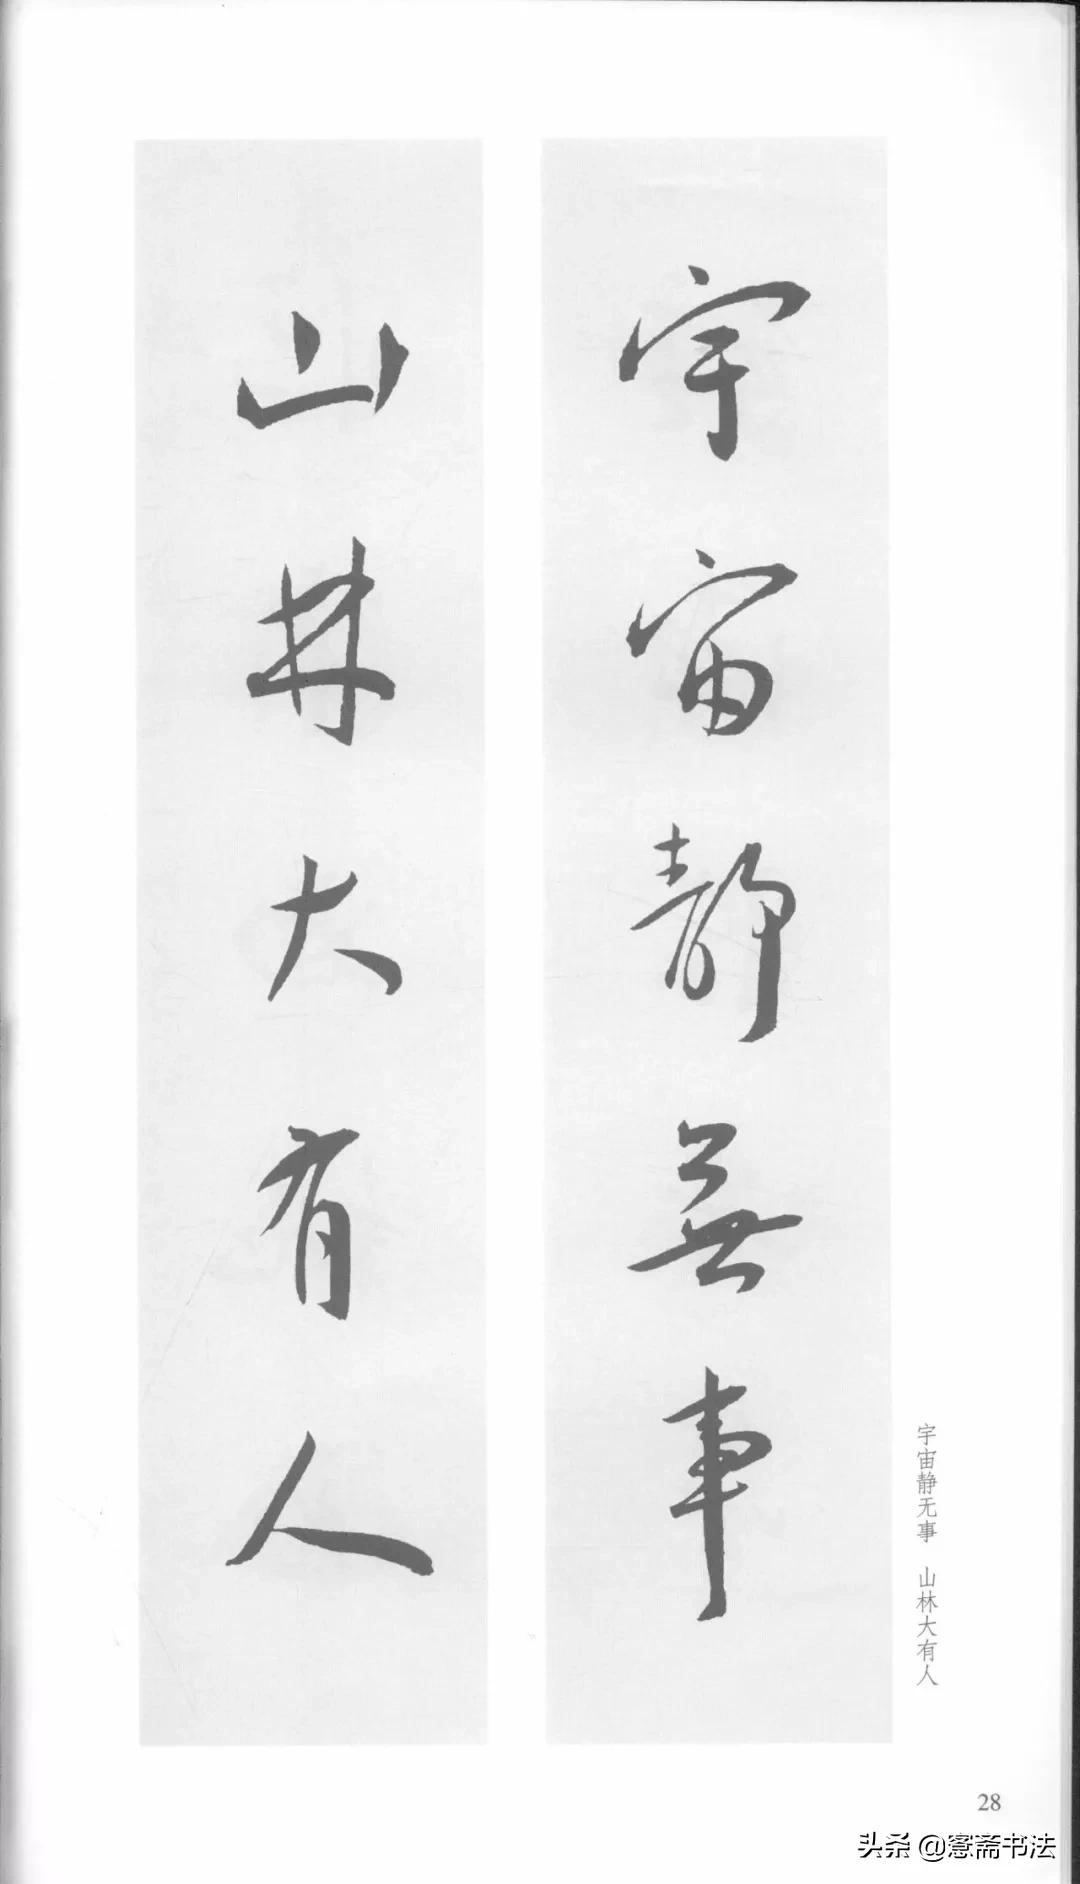 宇宙靜無事
山林大有人
宇宙静无事 山林大有人
28
头条 @窓斋书法